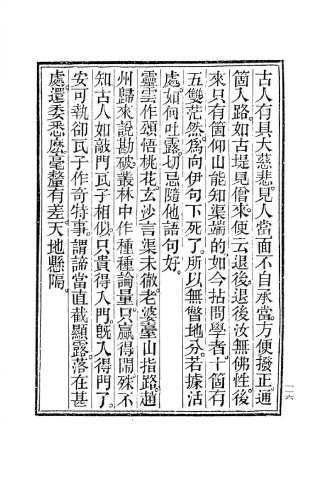 古人有具大慈悲。見人當面不自承當。方便撥正。通
箇入路。如古堤見僧來。便云退後退後。汝無佛性。後
來只有箇仰山能知渠端的。如今拈問學者。十箇有
五雙茫然。爲向伊句下死了。所以無瞥地分。若據活
處。如何吐露。切忌隨他語句好。
靈雲作頌悟桃花。玄沙言渠未徹。老婆臺山指路。趙
州歸來說勘破。叢林中作種種論量。只贏得鬧。殊不
知古人如敲門瓦子相似。只貴得入門。旣入得門了。
安可執卻瓦子作奇特事。謂諦當直截顯露。落在甚
處。還委悉麼。毫釐有差。天地懸隔。
二六